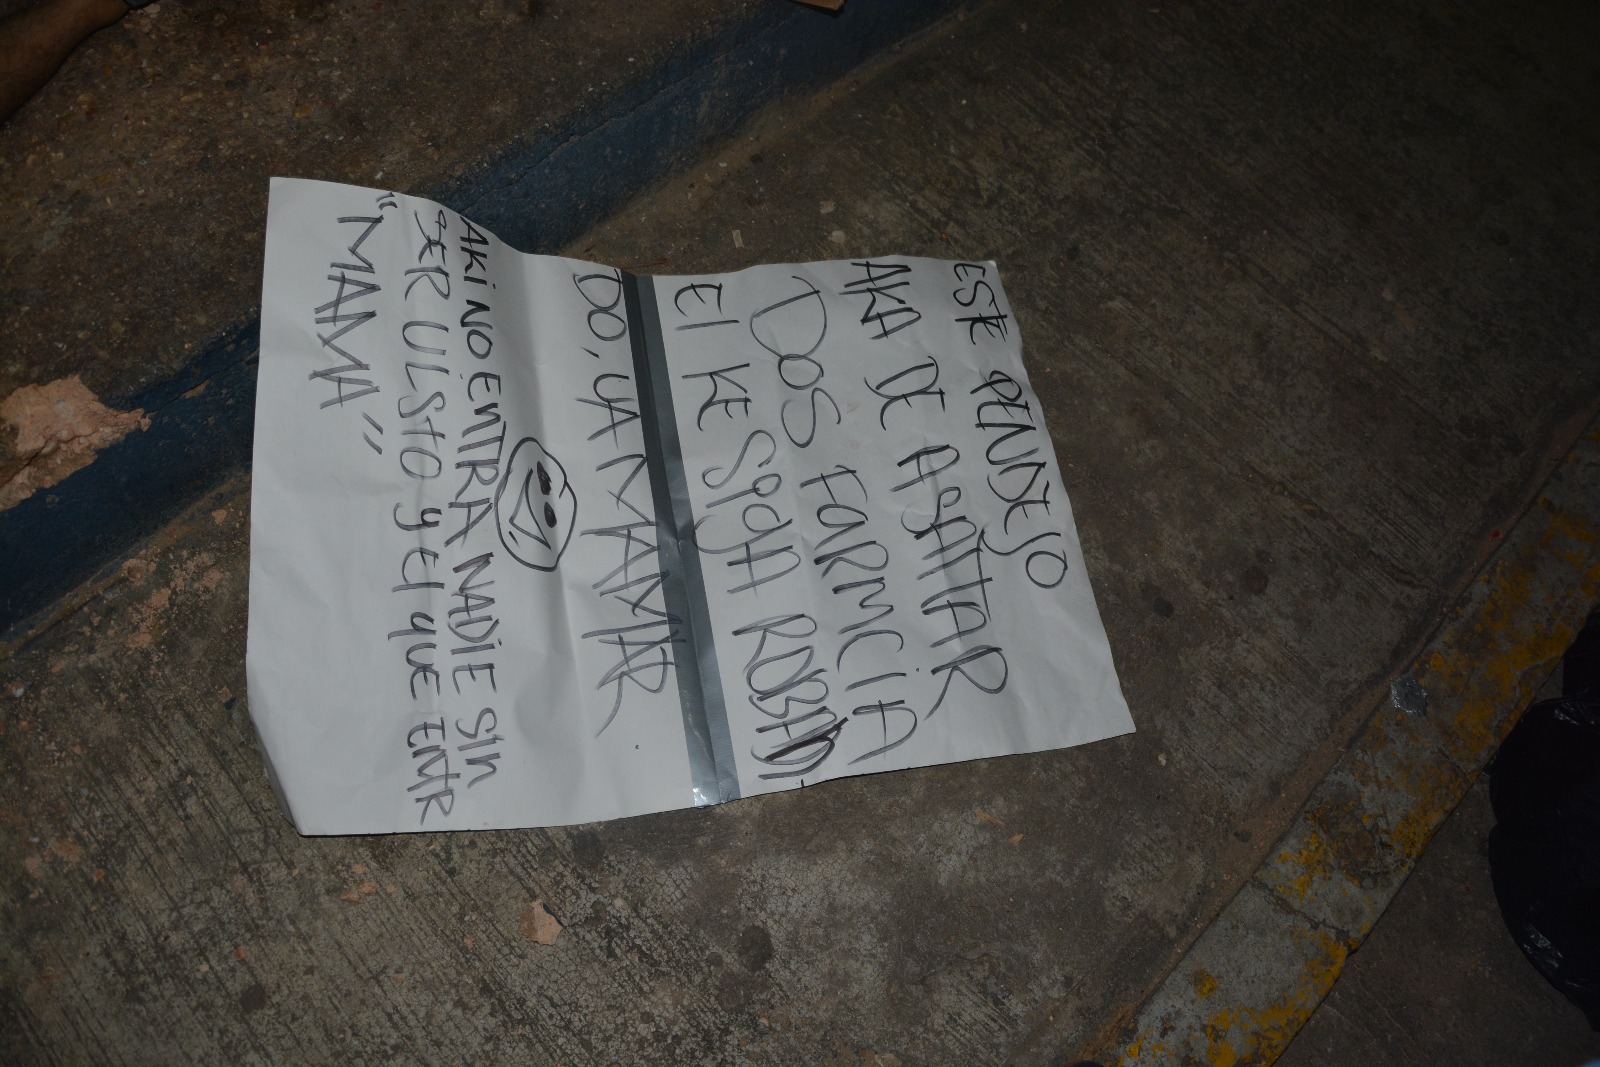 ESTE PENDEJO
AKA DE ASATAR
DOS FARMCIA
El KE SIgA ROBAN
DO, VA MAMAR
AKI NO ENTRA NADIE SIn
SER ULStO y El qUE ENTR
"MAMA"